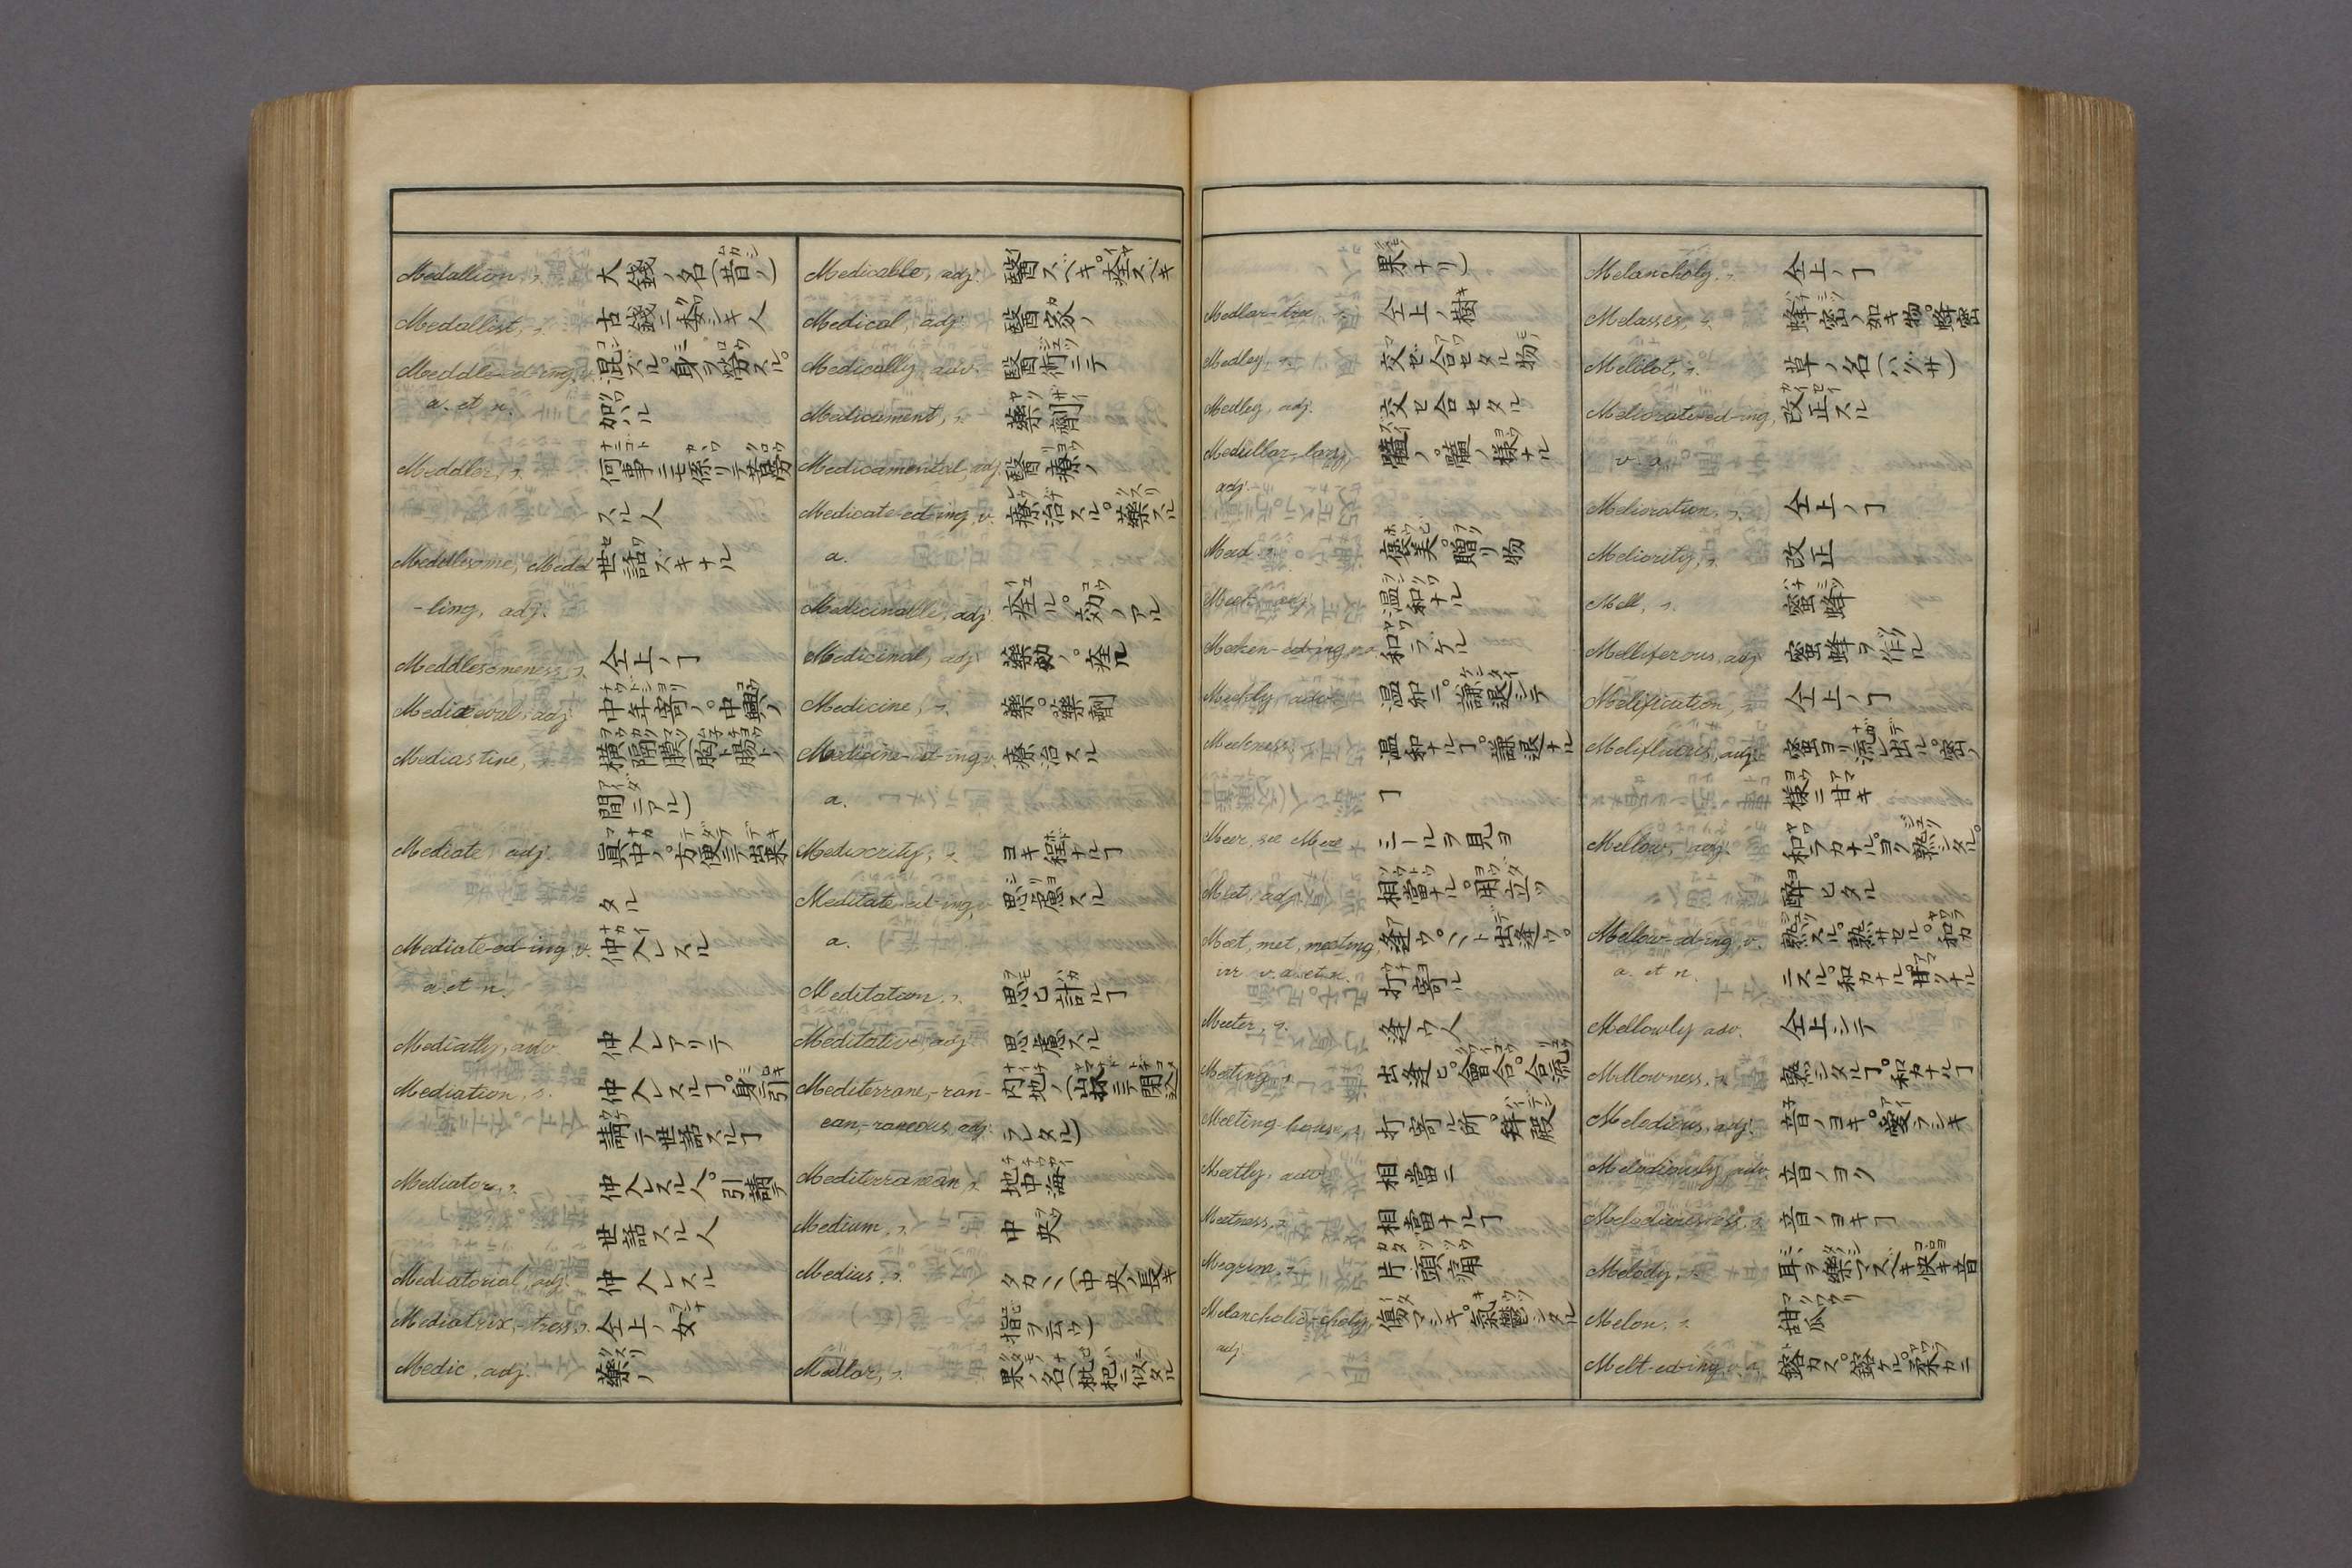 Medallion, s. 大錢ノ名(昔ノ)
Medallist, s. 古錢ニ委シキ人
Meddle-ed-ing, v. 混ズル。身ヲ勞スル。
a. et n. 加ハル
Meddler, s. 何事ニモ係リテ苦勞
スル人
Meddlesome, Medd 世話ズキナル
-ling, adj.
Meddlesomeness, s. 仝上ノヿ
Mediæval, adj. 中年寄ノ。中興ノ
Mediastine, 横隔膜(胸ト腸トノ
間ニアル)
Mediate, adj. 眞中ノ。方便ニテ出来
タル
Mediate-ed-ing, v. 仲入レスル
a. et n.
Mediatly, adv. 仲入レアリテ
Mediation, s. 仲入レスルヿ。身ニ引
請テ世話スルヿ
Mediator, s. 仲入レスル人。引請テ
世話スル人
Mediatorial, adj. 仲入レスル
Mediatrix,-tress, s. 仝上ノ女
Medic, adj. 藥ノ
Medicable, adj. 醫スベキ。痊スベキ
Medical, adj. 醫家ノ
Medically, adv. 醫術ニテ
Medicament, s. 藥劑
Medicamental, adj. 醫療ノ
Medicate-ed-ing, v. 療治スル。藥スル
a.
Medicinable, adj. 痊ル。効ノアル
Medicinal, adj. 藥効ノ。痊ル
Medicine, s. 藥。藥劑
Medicine-ed-ing, v. 療治スル
a.
Mediocrity, s. ヨキ程ナルヿ
Meditate-ed-ing, v. 思慮スル
a.
Meditation, s. 思ヒ計ルヿ
Meditative, adj. 思慮スル
Mediterrane,-ran- 内地ノ(山抔ニテ閉込
ean,-raneous, adj. ラレタル)
Mediterranean, s. 地中海
Medium, s. 中央
Medius, s. タカ〱(中央ノ長キ
指ヲ云ウ)
Medlar, s. 果ノ名(枇杷ニ似タル
果ナリ)
Medlar-tree, s. 仝上ノ樹
Medley, s. 交ゼ合セタル物
Medley, adj. 交ゼ合セタル
Medullar,-lary, 髓ノ。髓ノ様ナル
adj.
Meed, s. 褒美。贈リ物
Meek, adj. 温和ナル
Meeken-ed-ing, v.a. 和ラゲル
Meekly, adv. 温和ニ。謙退シテ
Meekness, 温和ナルヿ。謙退ナル
ヿ
Meer, see Mere ミールヲ見ヨ
Meet, adj. 相當ナル。用立ツ
Meet, met, meeting, 逢ウ。ハト出逢ウ。
irr. v. a. et n. 打寄ル
Meeter, s. 逢ウ人
Meeting, s. 出逢ヒ。會合。合流
Meeting-house, s. 打寄ル所。拜殿
Meetly, adv. 相當ニ
Meetness, s. 相當ナルヿ
Megrim, s. 片頭痛
Melancholic,-choly, 傷マシキ。氣鬱シタル
adj.
Melancholy, s. 仝上ノヿ
Melasses, s. 蜂密ノ如キ物。蜂密
Melilot, s. 草ノ名(ハグサ)
Meliorate-ed-ing, 改正スル
v. a.
Melioration, s. 仝上ノヿ
Meliority, s. 改正
Mell, s. 蜜蜂
Melliferous, adj. 蜜蜂ヲ作ル
Melification, 仝上ノヿ
Melifluous, adj. 蜜ヨリ流レ出ル。密ノ
様ニ甘キ
Mellow, adj. 和ラカナル。ヨク熟シタル。
醉ヒタル
Mellow-ed-ing, v. 熟スル。熟サセル。和カ
a. et n. ニスル。和カナル。甘クナル
Mellowly, adv. 仝上シテ
Mellowness, s. 熟シタルヿ。和カナルヿ
Melodious, adj. 音ノヨキ。愛ラシキ
Melodiously, adv. 音ノヨク
Melodiousness, s. 音ノヨキヿ
Melody, s. 耳ヲ樂マスベキ快キ音
Melon, s. 甜瓜
Melt-ed-ing, v. a. 鎔カス。鎔ケル。柔カニ